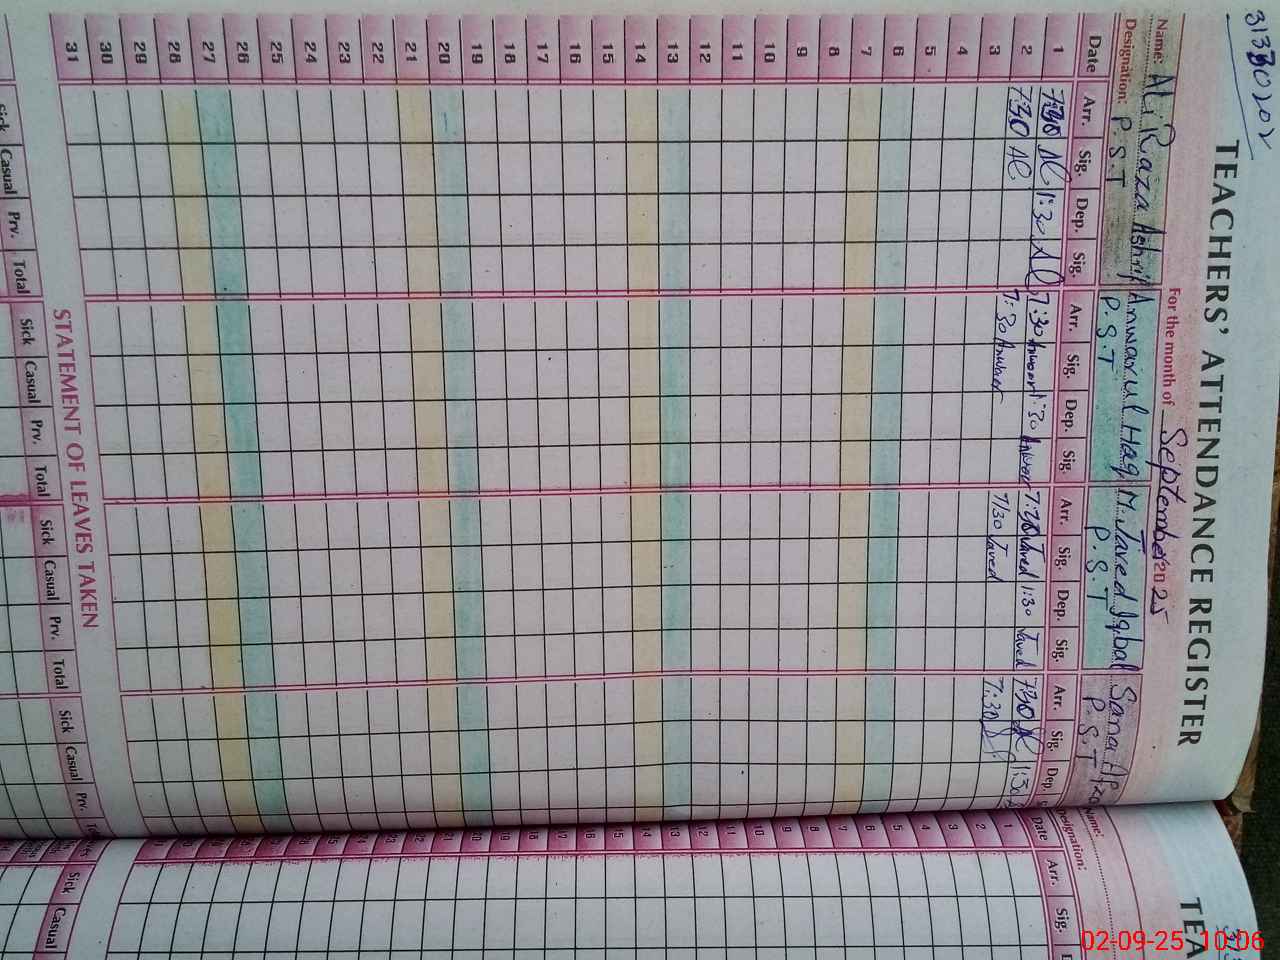 TEACHERS' ATTENDANCE REGISTER
For the month of September 2025
Name: Ali Raza Ashrif Anwar ul Haq M. Javed Iqbal Sana
Designation: P.S.T P.S.T P.S.T P.S.T
Date Arr. Sig. Dep. Sig. Arr. Sig. Dep. Sig. Arr. Sig. Dep. Sig. Arr. Sig. Dep.
1 7:30 Al 1:30 Al 7:30 Anwar 1:30 Anwar 7:30 Javed 1:30 Javed 7:30 1:30
2 7:30 Al 7:30 Anwar 7/30 Javed 7:30
3
4
5
6
7
8
9
10
11
12
13
14
15
16
17
18
19
20
21
22
23
24
25
26
27
28
29
30
31
STATEMENT OF LEAVES TAKEN
Sick Casual Prv. Total Sick Casual Prv. Total Sick Casual Prv. Total Sick Casual Prv.
TEA
Name:
Designation:
Date Arr. Sig.
1
2
3
4
5
6
7
8
9
10
11
12
13
14
15
16
17
18
19
20
21
22
23
24
25
Sick Casual
02-09-25 10:06